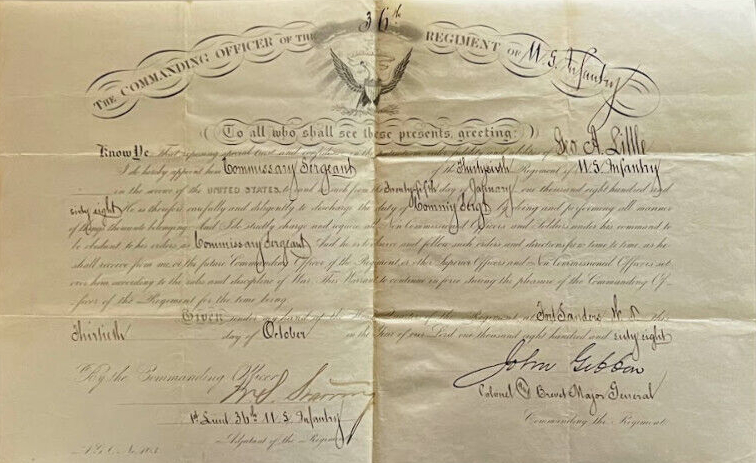 THE COMMANDING OFFICER OF THE 36th REGIMENT OF U.S. Infantry
To all who shall see these presents, greeting:
Know Ye, That reposing special trust and confidence in the fidelity and abilities of Geo. A. Little
I do hereby appoint him Commissary Sergeant of the Thirtysixth Regiment of U.S. Infantry
in the service of the UNITED STATES, to rank as such from the twentyfifth day of January one thousand eight hundred and
sixty eight He is therefore carefully and diligently to discharge the duty of Commiss'y Serg't by doing and performing all manner
of things thereunto belonging. And I do strictly charge and require all Non Commissioned Officers and Soldiers under his command to
be obedient to his orders as Commissary Sergeant And he is to observe and follow such orders and directions from time to time, as he
shall receive from me, or the future Commanding Officer of the Regiment, or other Superior Officers and Non Commissioned Officers set
over him, according to the rules and discipline of War. This Warrant to continue in force during the pleasure of the Commanding Of-
ficer of the Regiment for the time being.
Given under my hand at the Head Quarters of the Regiment at Fort Sanders this
Thirtieth day of October in the Year of our Lord one thousand eight hundred and sixty eight
By the Commanding Officer
John Gibbon
Colonel Brevet Major General
Commanding the Regiment
1st Lieut. 36th U.S. Infantry
Adjutant of the Regiment
A.G.O. No.